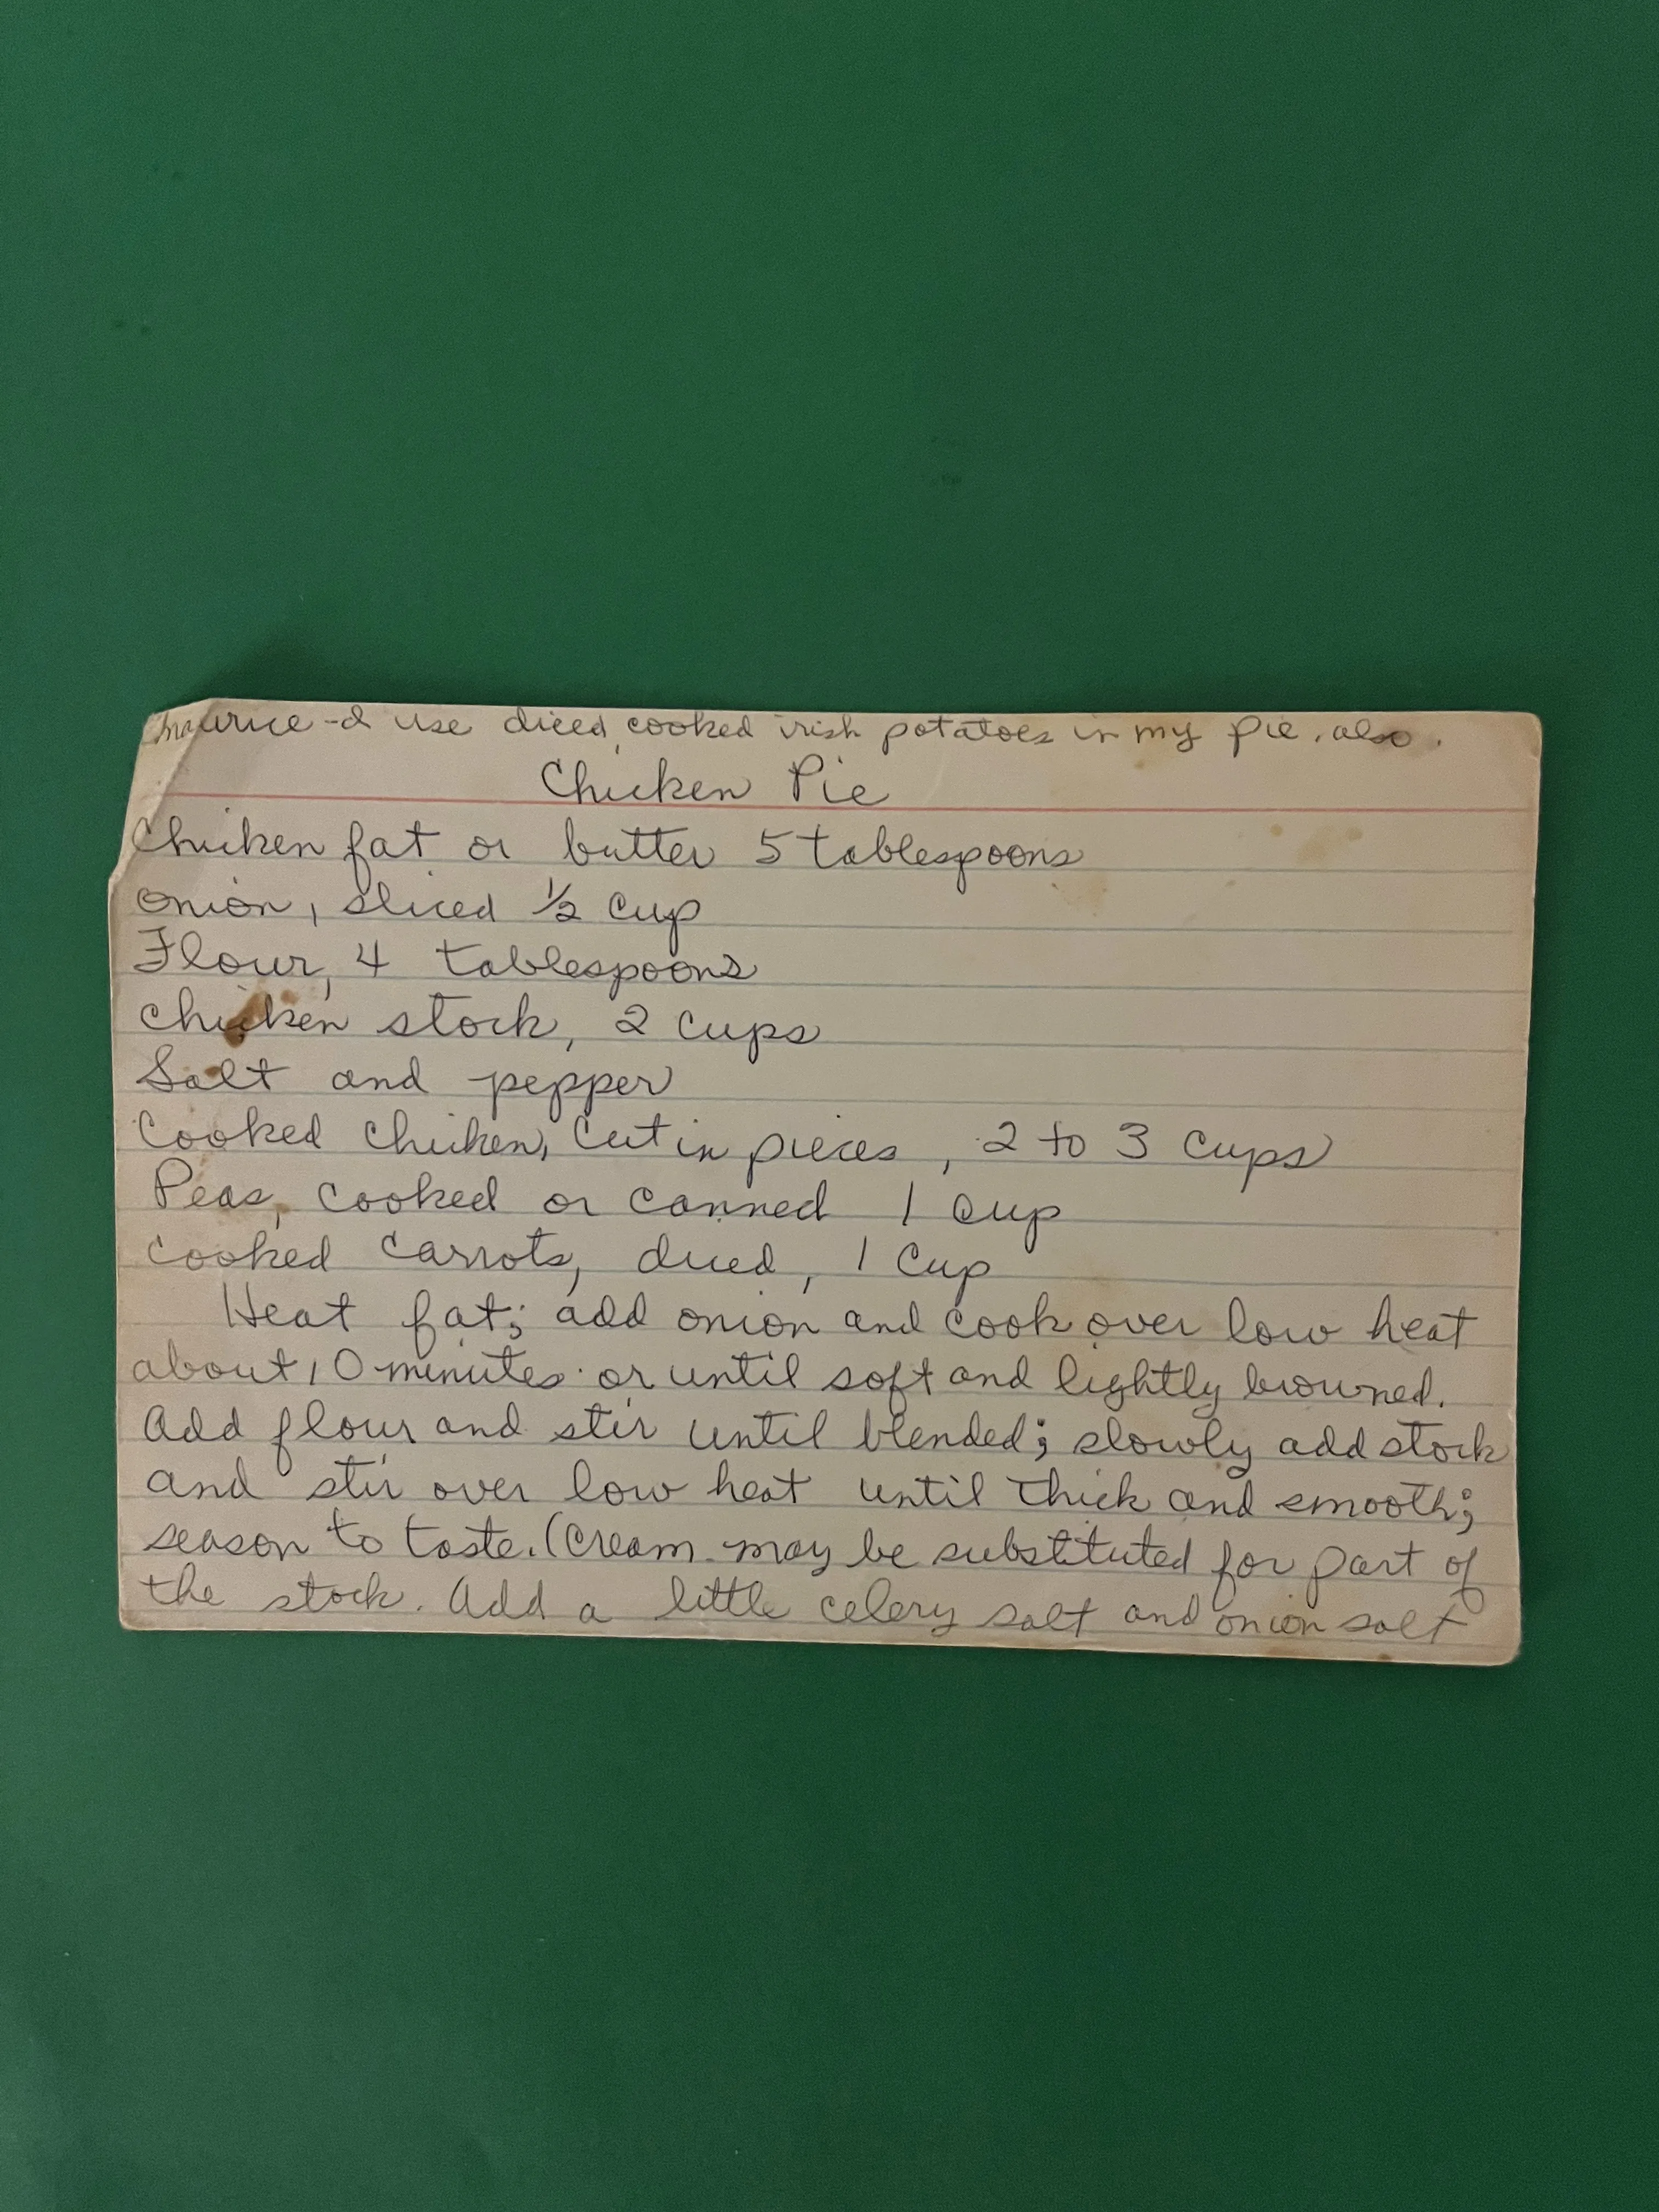 Maurice - I use diced cooked irish potatoes in my pie, also.
Chicken Pie
Chicken fat or butter 5 tablespoons
Onion, sliced ½ cup
Flour, 4 tablespoons
Chicken stock, 2 cups
Salt and pepper
Cooked chicken, cut in pieces, 2 to 3 cups
Peas, cooked or canned 1 cup
Cooked carrots, diced, 1 cup
Heat fat; add onion and cook over low heat
about 10 minutes or until soft and lightly browned.
Add flour and stir until blended; slowly add stock
and stir over low heat until thick and smooth;
season to taste. (Cream may be substituted for part of
the stock. Add a little celery salt and onion salt